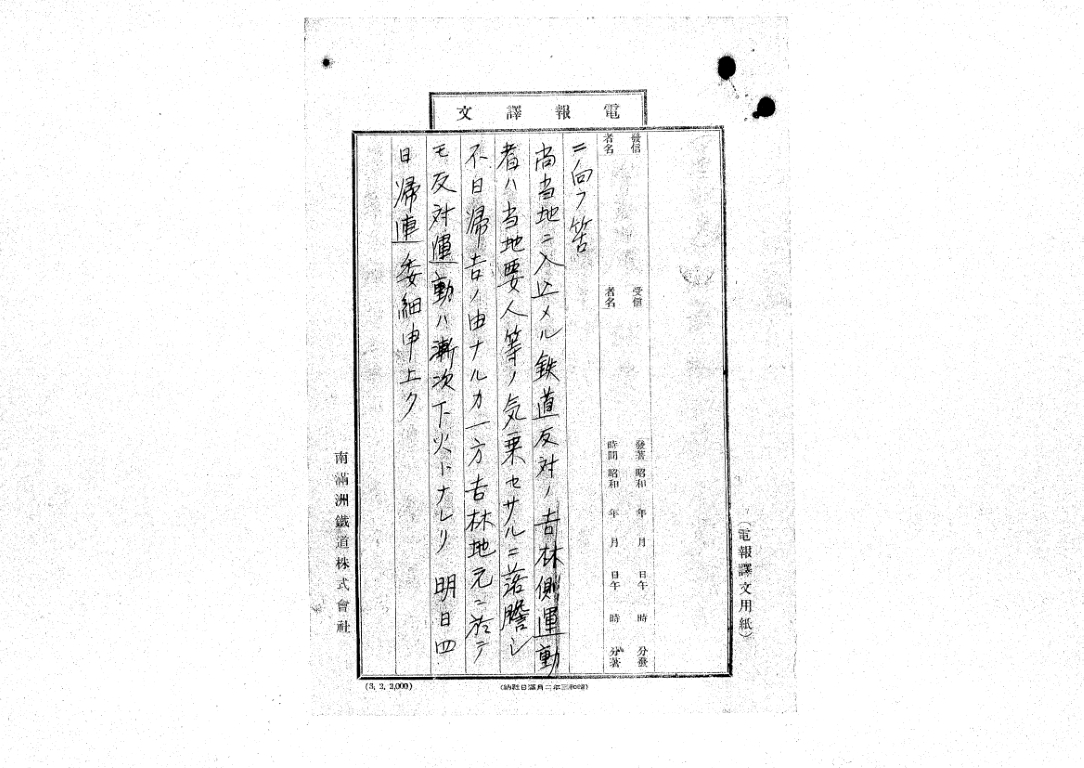 電報譯文
發信者名
受信者名
發著時間 昭和 年 月 日午 時 分發
昭和 年 月 日午 時 分著
ニ向フ筈
尚当地ニ入込メル鉄道反対ノ吉林側運動
者ハ当地要人等ノ気乗セサルニ落膽シ
不日帰吉ノ由ナルカ一方吉林地元ニ於テ
モ反対運動ハ漸次下火トナレリ 明日四
日帰連委細申上ク
(電報譯文用紙)
南滿洲鐵道株式會社
(3. 2. 2,000)